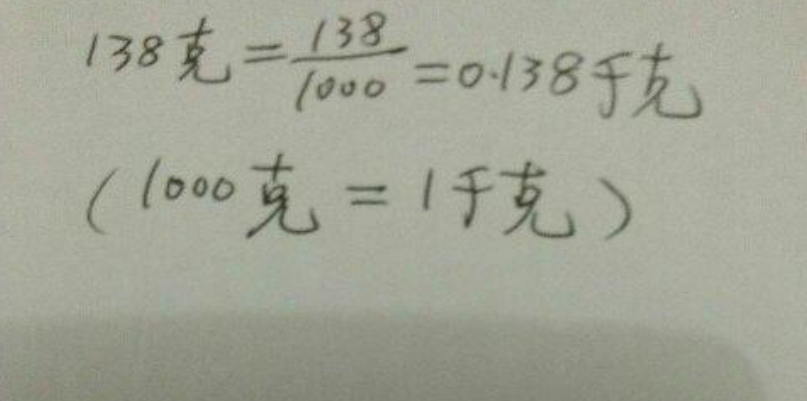 138克=138/1000=0.138千克
(1000克=1千克)